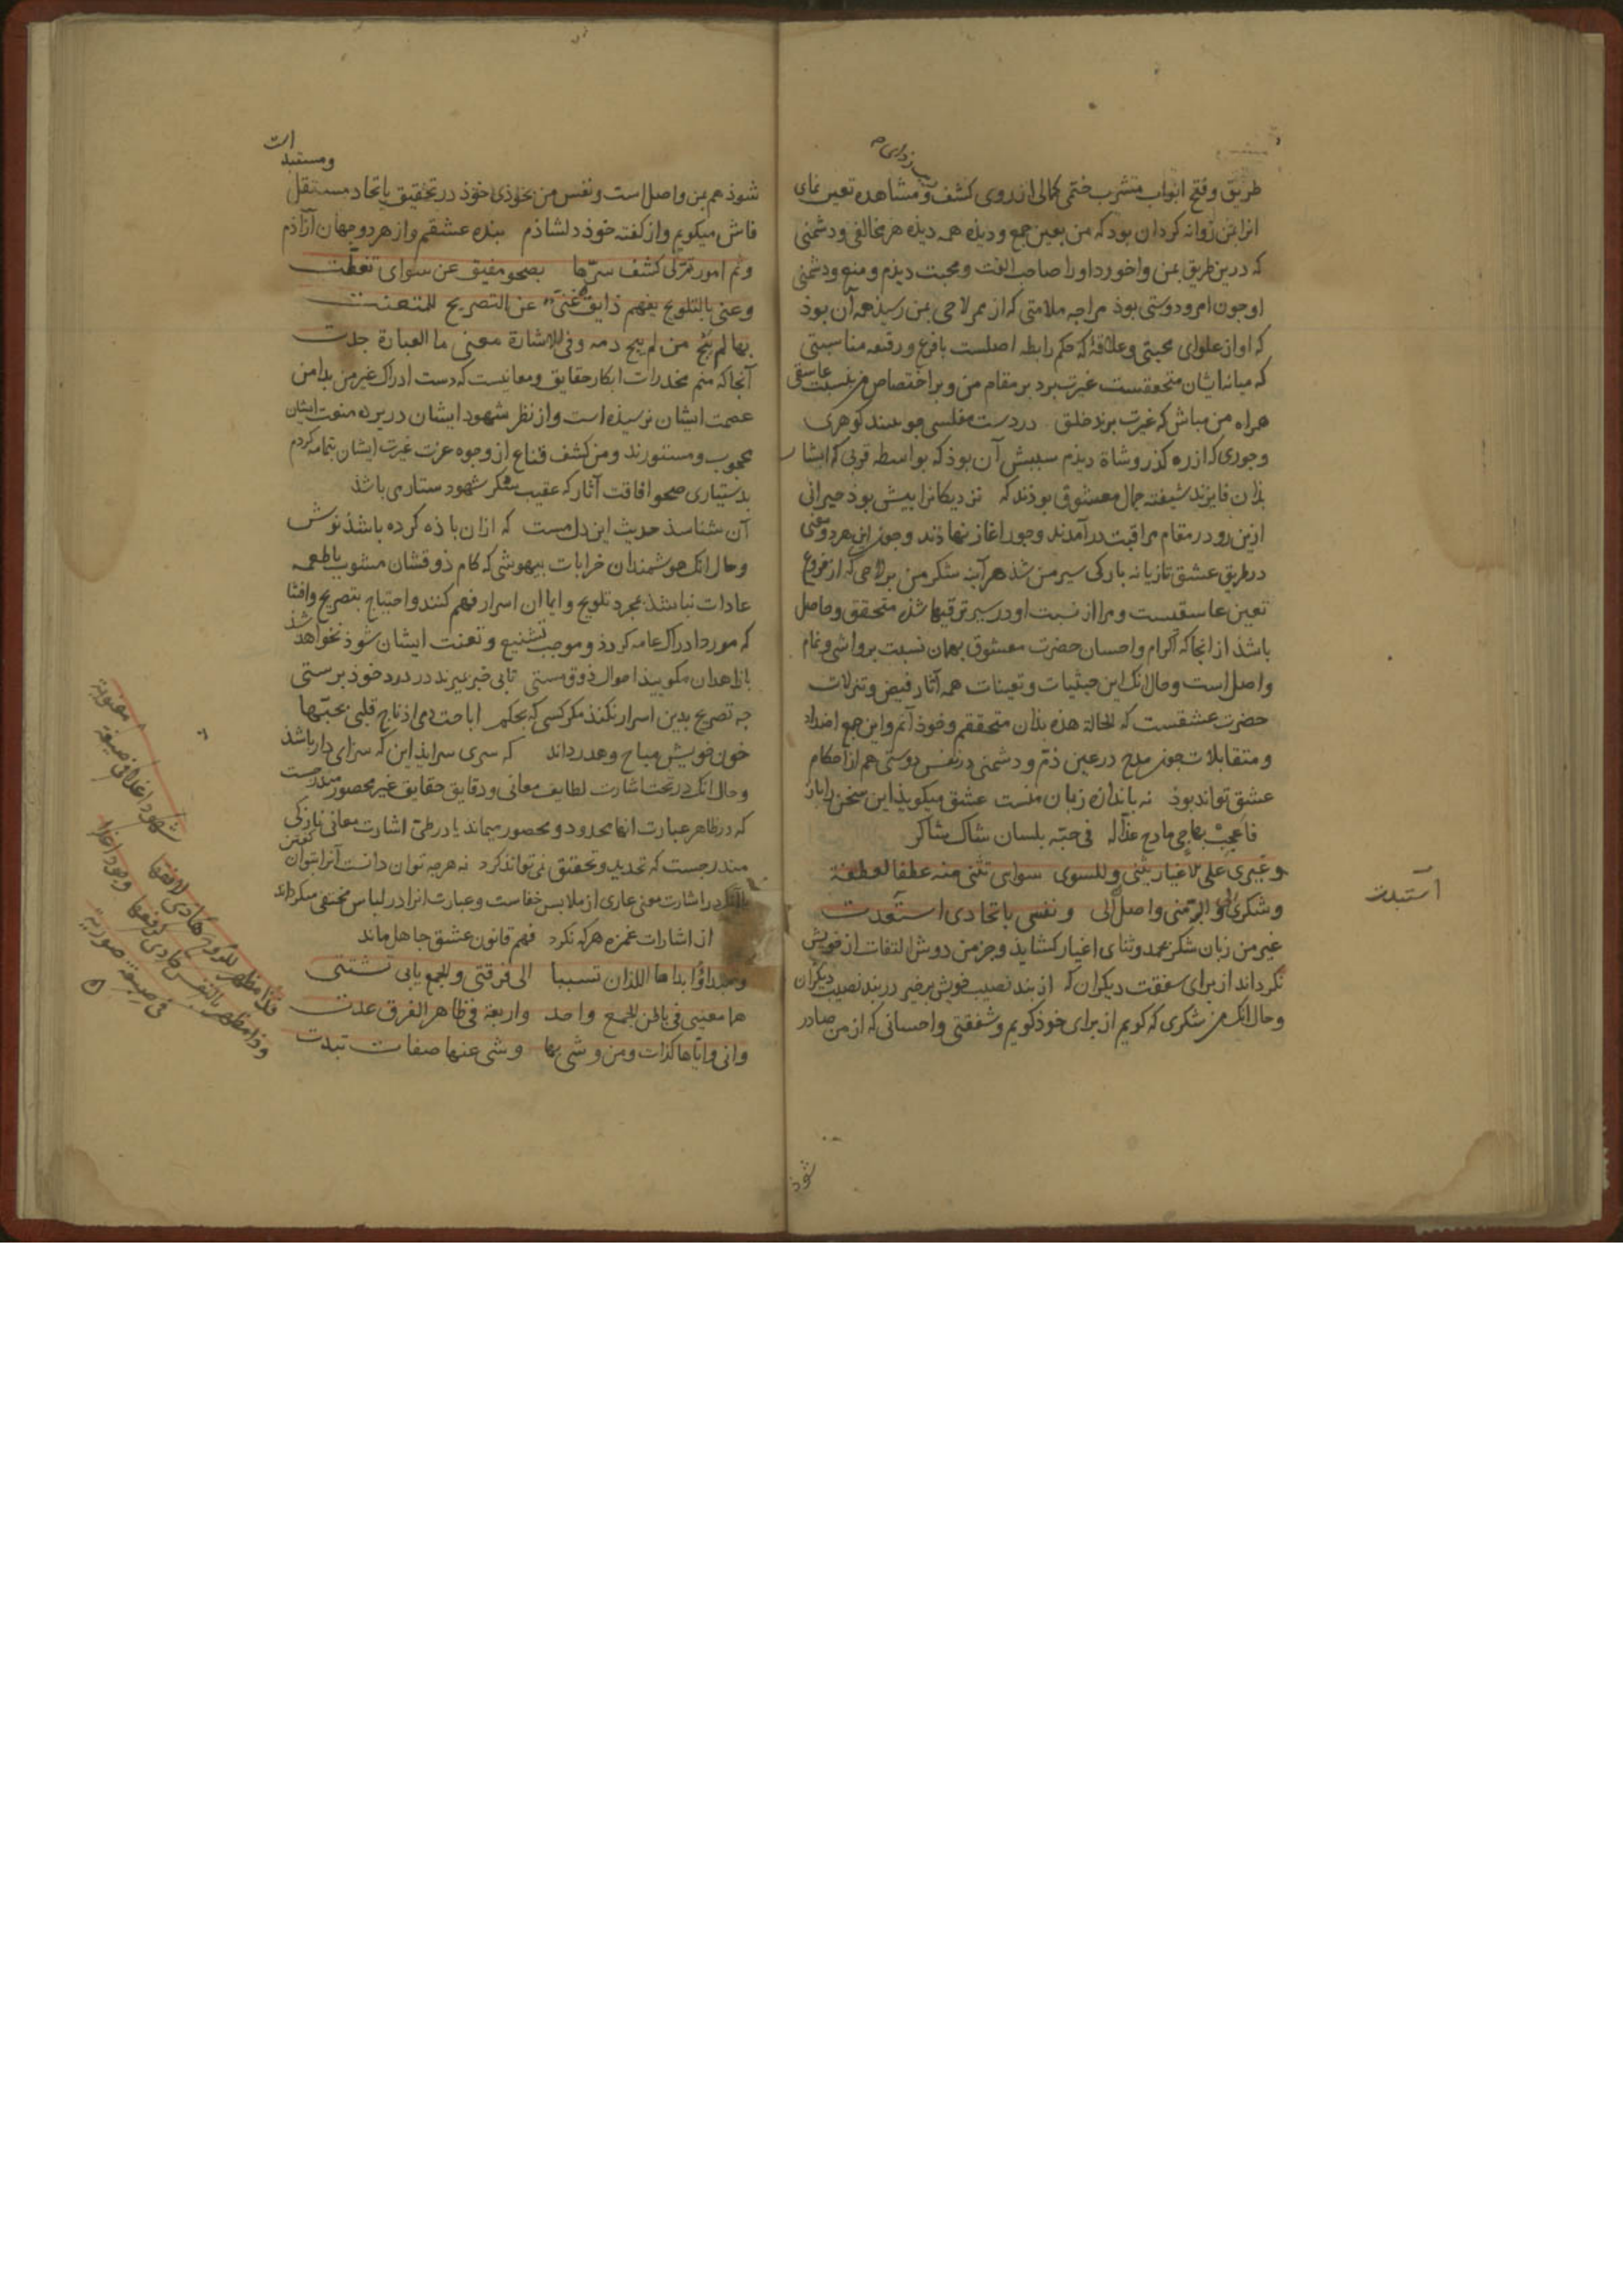 طریق و فتح ابواب مشرب ختمی کمالی از روی کشف و مشاهده تعین نمای
کردان بود که من بعین جمع و دیده همه دیده هر مخالفی و دشمنی
که درین طریق بمن واخورد او را صاحب الفت و محبت دیذم و منع و دشمنی
او چون امر و دوستی بوذ مرا چه ملامتی که از ممر لاحی بمن رسیذ همه آن بوذ
که او از علوای محبتی و علاقهٔ که حکم رابطه اصلست بافرع و رقیقه مناسبتی
که میانه ایشان متحققست غیرت برد بر مقام من و بر اختصاص من بنسبت عاشقی
همراه من مباش که غیرت برند خلق در دست مفلسی چو ببینند کوهری
و جوری که از ره کذر وشاة دیذم سببش آن بوذ که بواسطه قربی که ایشان
بذان فایزند شیفته جمال معشوق بوذند که نزدیکانرا بیش بوذ حیرانی
ازین رو در مقام مراقبت در آمدند و جور آغاز نهاذند و چون این هر دو معنی
در طریق عشق تازیانه بارکی سیر من شذ هر آینه شکر من بر لاحی که از فروع
تعین عاشقست و مرا از نسبت او در سیر ترقیها شذه متحقق و حاصل
باشذ از آنجا که اکرام و احسان حضرت معشوق بهمان نسبت بر واشی و نمام
واصل است و حال آنک این حیثیات و تعینات همه آثار فیض و تنزلات
حضرت عشقست که الحالة هذه بذان متحققم و خوذ آنم و این جمع اضداد
و متقابلات چون مدح در عین ذم و دشمنی در نفس دوستی هم از احکام
عشق تواند بوذ نه باندازه زبان منست عشق میکویذ این سخن را باز
فاعجب بهاجی مادح عذاله فی حبه بلسان شاک شاکر
وغیری علی الاغیار یثنی وللسوی سوای یثنی منه عطفا لعطفة
وشکری لی والبر منی واصل الی ونفسی باتحادی استعدت
غیر من زبان شکر بحمد و ثنای اغیار کشایذ و جز من دوش التفات از خویش
نکرداند از برای شفقت دیکران که از بند نصیب خویش برخیز در بند نصیب دیکران
و حال آنک من شکری که کویم از برای خوذ کویم و شفقتی و احسانی که از من صادر
استبدت
شوذ
ومستبد است
شوذ هم بمن واصل است و نفس من بخوذی خوذ در تحقیق باتحاد مستقل
فاش میکویم و از کفته خوذ دلشاذم بنده عشقم و از هر دو جهان آزاذم
وثم امور تم لی کشف سرها بصحو مفیق عن سوای تغطت
وعنی بالتلویح یفهم ذایق غنی عن التصریح للمتعنت
بها لم یبح من لم یبح دمه وفی الاشارة معنی ما العبارة حدت
آنجا که منم مخدرات ابکار حقایق و معانیست که دست ادراک غیر من بدامن
عصمت ایشان نرسیذه است و از نظر شهود ایشان در پرده منوت ایشان
محجوب و مستورند و من کشف قناع از وجوه عزت غیرت ایشان بتمامه کردم
بدستیاری صحو افاقت آثار که عقیب سکر شهود ستاری باشذ
آن شناسذ حدیث این دل مست که ازان باذه کرده باشذ نوش
و حال آنک هوشمندان خرابات بیهوشی که کام ذوقشان مشوب باطعمه
عادات نباشذ بمجرد تلویح و ایما آن اسرار فهم کنند و احتیاج بتصریح و افشا
که مورد ادراک عامه کردد و موجب تشنیع و تعنت ایشان شوذ نخواهد شذ
با زاهدان مکوییذ احوال ذوق مستی تا بی خبر بمیرند در درد خوذ پرستی
چه تصریح بدین اسرار نکنذ مکر کسی که بحکم اباحت دمی اذ ناج قلبی بحبها
خون خویش مباح و هدر داند که سری سرایذ این که سزای دار باشذ
و حال آنک در تحت اشارت لطایف معانی و دقایق حقایق غیر محصور مندرجست
که در ظاهر عبارت آنها محدود و محصور میماند یا در طی اشارت معانی نازکی
مندرجست که تحدید و تحقیق نمی تواند کرد نه هر چه توان دانست آنرا بتوان کفتن
در اشارت معنی عاری از ملابس خفاست و عبارت آنرا در لباس مختفی میکرداند
از اشارات غمزه هر که نکرد فهم قانون عشق جاهل ماند
ومبدأ ابداها اللذان تسببا الی فرقتی والجمع یابی تشتتی
هما معنیی فی باطن الجمع واحد واربعة فی ظاهر الفرق عدت
وانی وایاها لذات ومن وشی بها وشی عنها صفات تبدت
فذا مظهر للروح هادی لافقها شهودا غدا فی صیغة معنویة
وذا مظهر بالنفس حادی لرفقها وجودا غدا فی صیغة صوریة